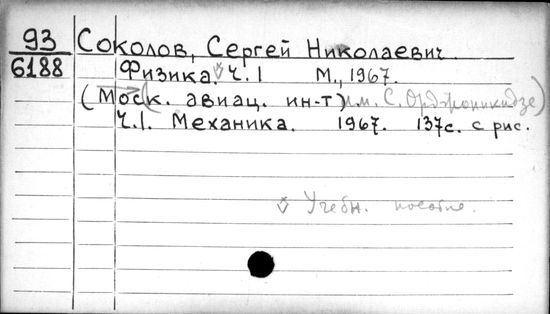 93 Соколов, Сергей Николаевич.
6188 Физика. Ч.1 М., 1967.
(Моск. авиац. ин-т) им. С. Орджоникидзе)
Ч.1. Механика. 1967. 137с. с рис.
Учебн. пособие.